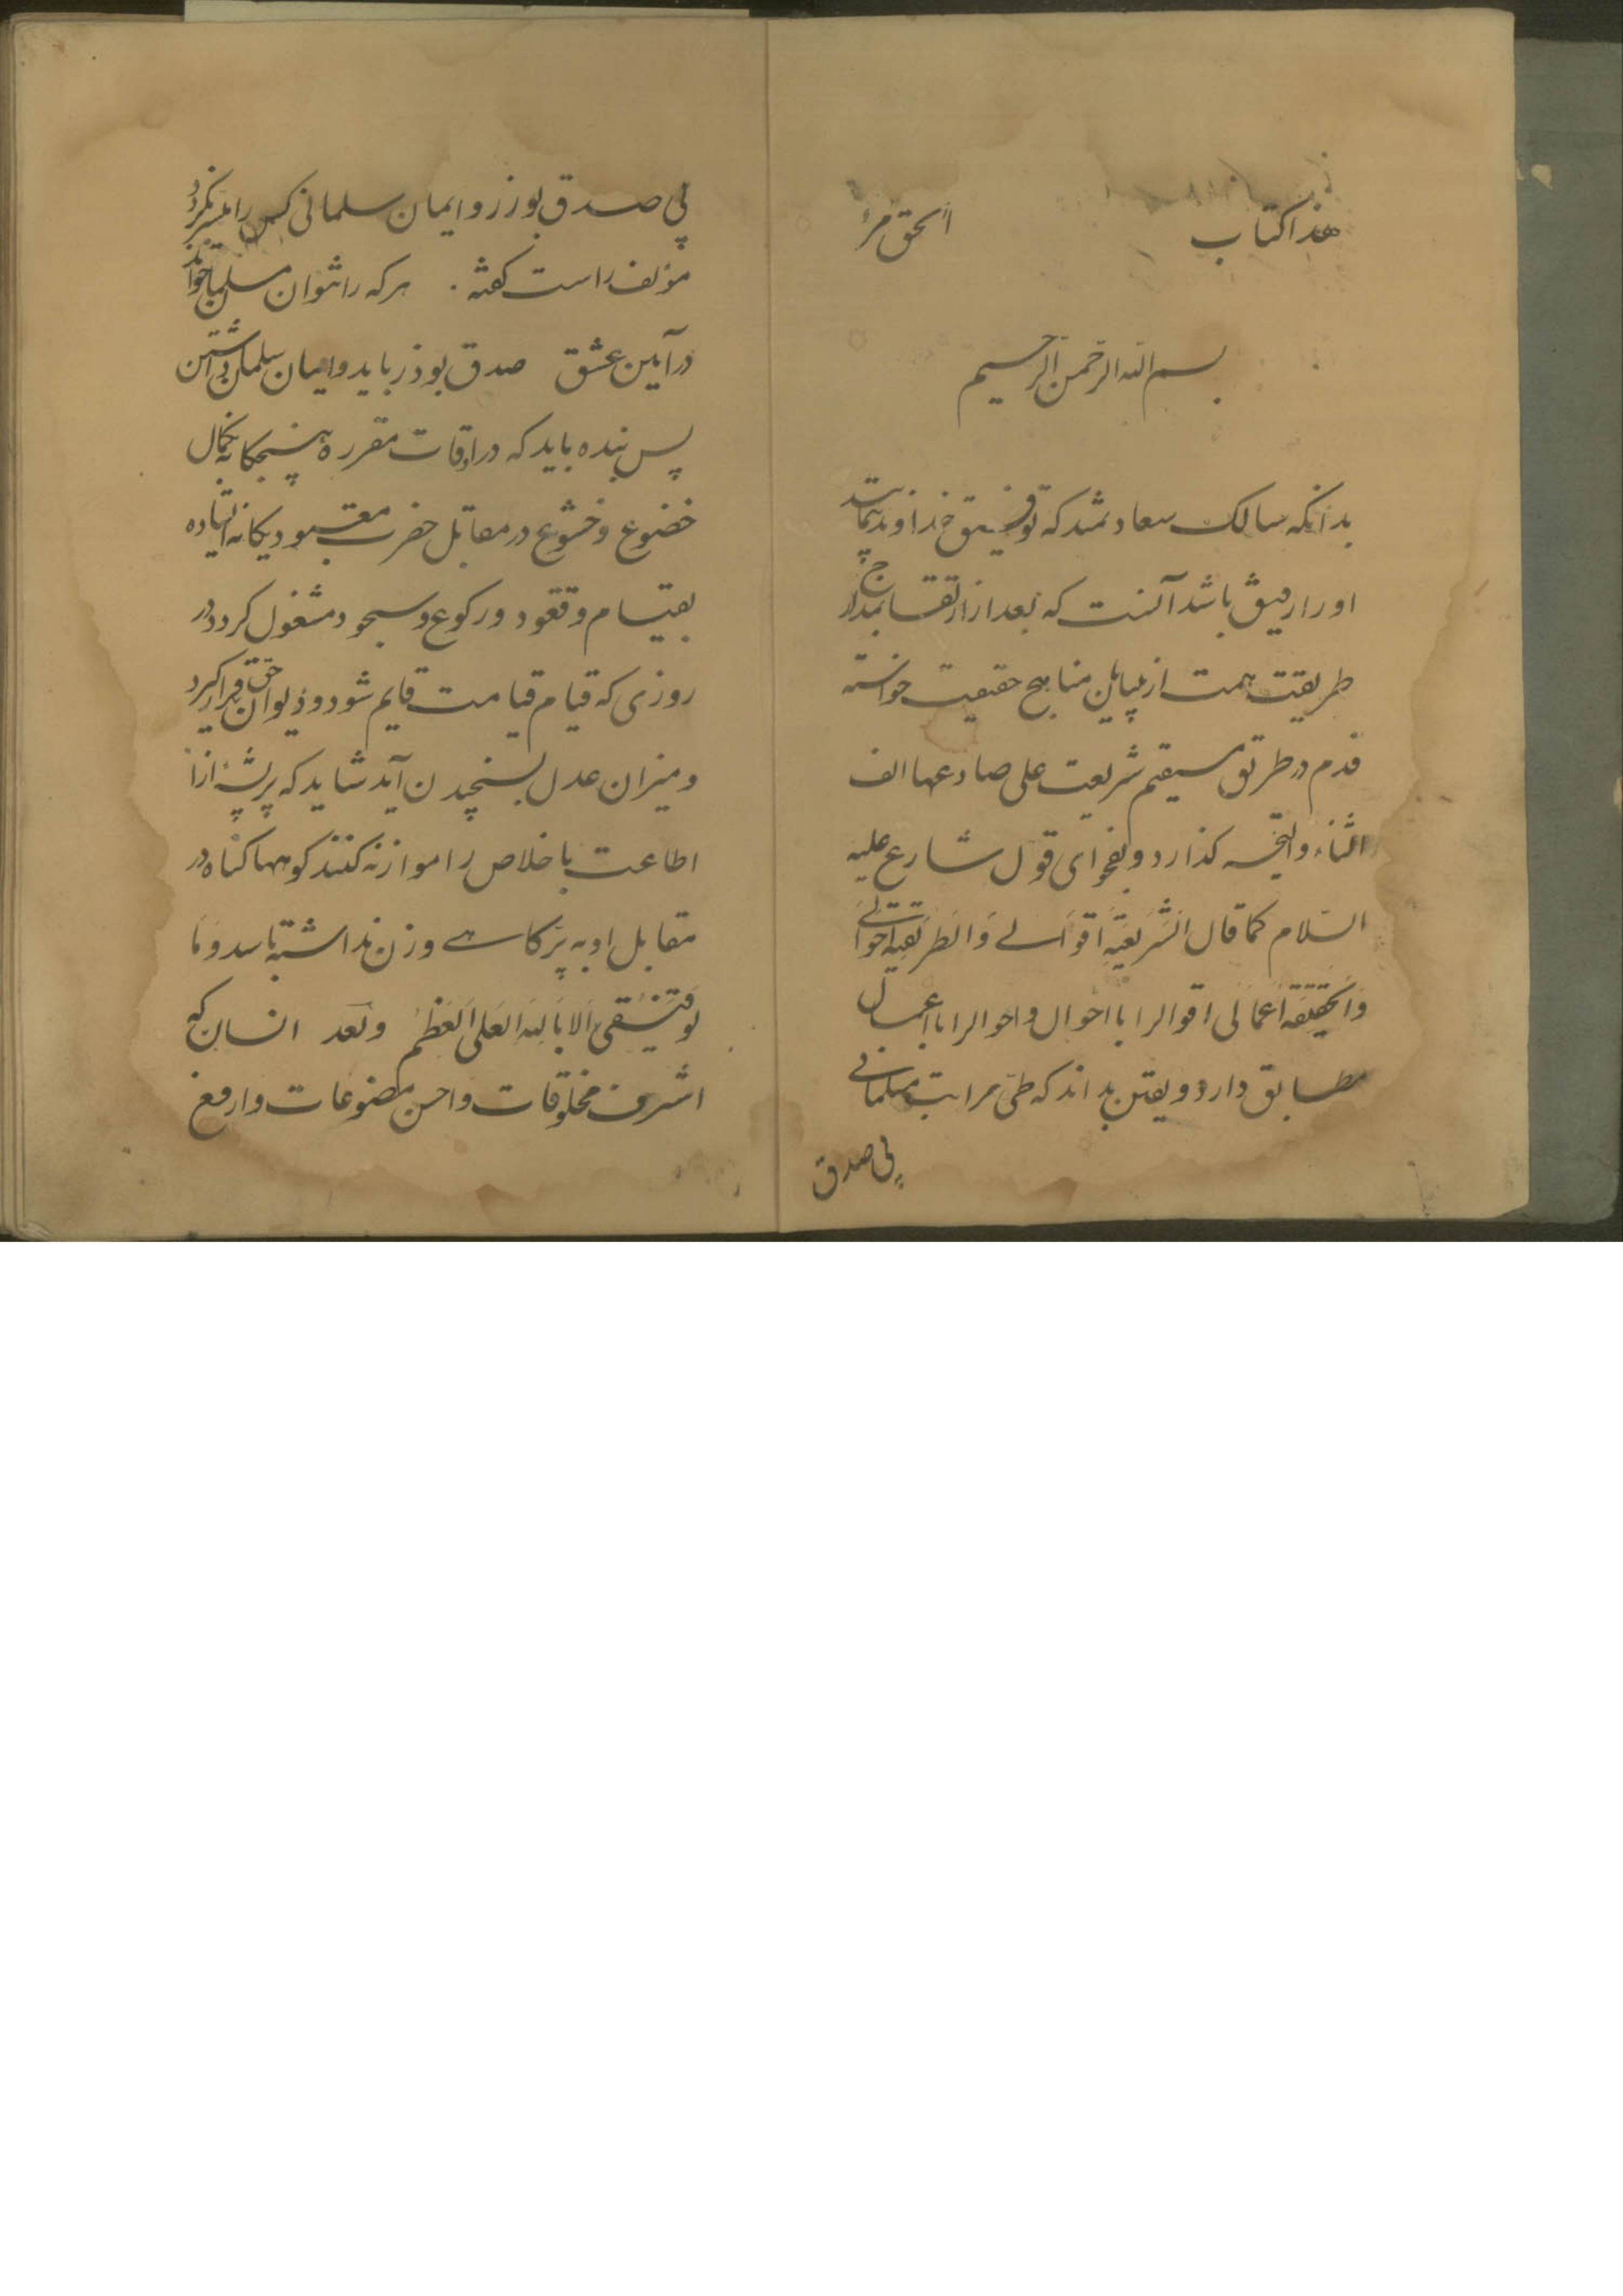 هذا کتاب
بسم الله الرحمن الرحیم
بدانکه سالک سعادتمند که توفیق خداوند
او را رفیق باشد آنست که بعد از ارتقا
طریقت همت از مناهج حقیقت خواسته
قدم در طریق مستقیم شریعت علی صادعها الف
الثناء والتحیه کذارد و بفحوای قول شارع علیه
السلام کما قال الشریعة اقوالے والطریقة احوالے
والحقیقة اعمالی اقوالرا با احوال و احوالرا با اعمال
مطابق دارد و یقین بداند که طی مراتب مسلمانے
بی صدق
بی صدق بوزر و ایمان سلمانی کس را میسر نکردد
مؤلف راست کفته . هر که را نتوان مسلمان خواند
در آیین عشق صدق بوذر باید و ایمان سلمان داشتن
پس بنده باید که در اوقات مقرره پنجکانه بکمال
خضوع و خشوع در مقابل حضرت معبود یکانه ایستاده
بقیام و قعود و رکوع و سجود مشغول کردد در
روزی که قیام قیامت قایم شود و دیوان حق قرار کیرد
و میزان عدل بسنجیدن آید شاید که پر پشه از
اطاعت باخلاص را موازنه کنند کوهها کناه در
مقابل او به پر کاهے وزن نداشته باسد و ما
توفیقی الا بالله العلی العظیم و بعد انسان که
اشرف مخلوقات و احسن مصنوعات و ارفع